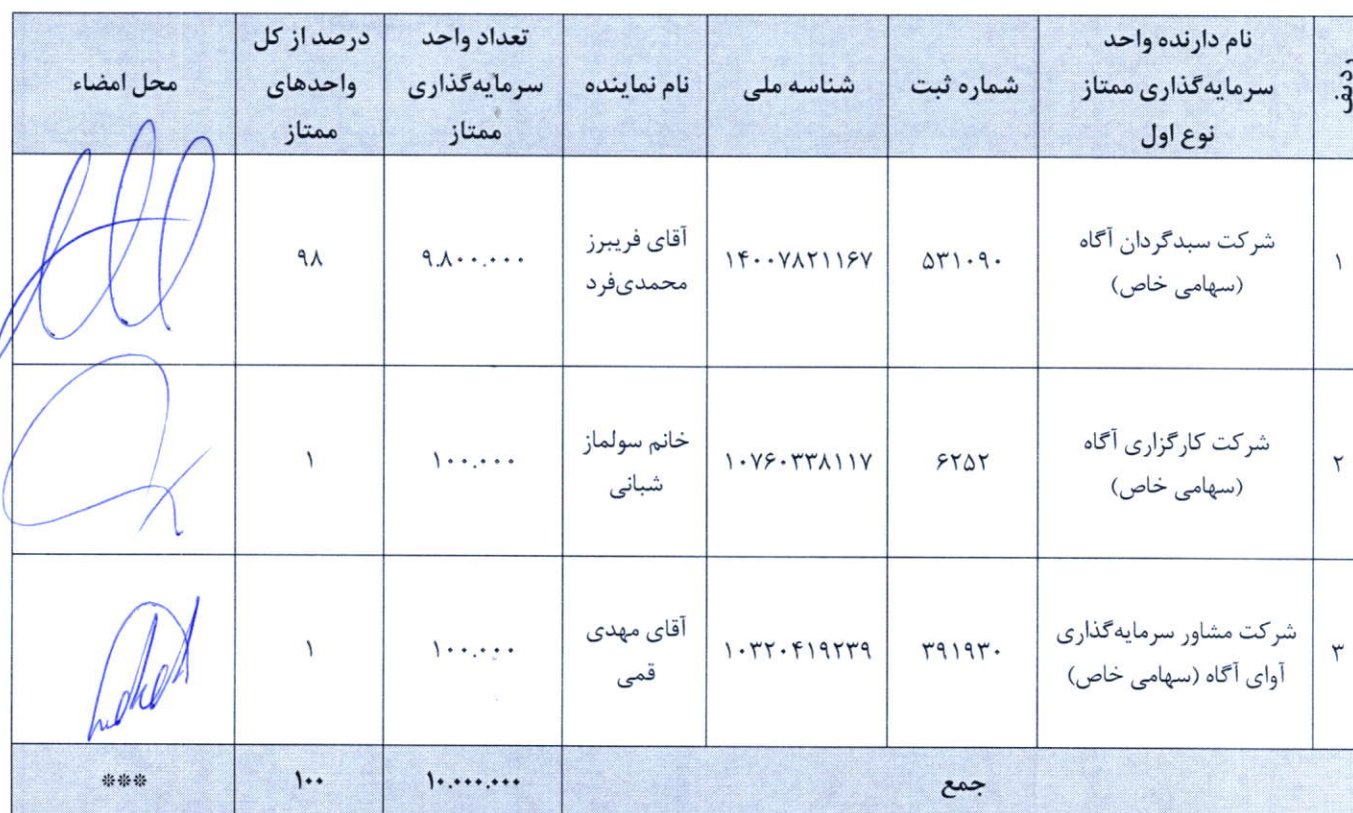 ردیف
نام دارنده واحد
سرمایه‌گذاری ممتاز
نوع اول
شماره ثبت
شناسه ملی
نام نماینده
تعداد واحد
سرمایه‌گذاری
ممتاز
درصد از کل
واحدهای
ممتاز
محل امضاء
۱
شرکت سبدگردان آگاه
(سهامی خاص)
۵۳۱۰۹۰
۱۴۰۰۷۸۲۱۱۶۷
آقای فریبرز
محمدی‌فرد
۹.۸۰۰.۰۰۰
۹۸
۲
شرکت کارگزاری آگاه
(سهامی خاص)
۶۲۵۲
۱۰۷۶۰۳۳۸۱۱۷
خانم سولماز
شبانی
۱۰۰.۰۰۰
۱
۳
شرکت مشاور سرمایه‌گذاری
آوای آگاه (سهامی خاص)
۳۹۱۹۳۰
۱۰۳۲۰۴۱۹۲۳۹
آقای مهدی
قمی
۱۰۰.۰۰۰
۱
جمع
۱۰.۰۰۰.۰۰۰
۱۰۰
***